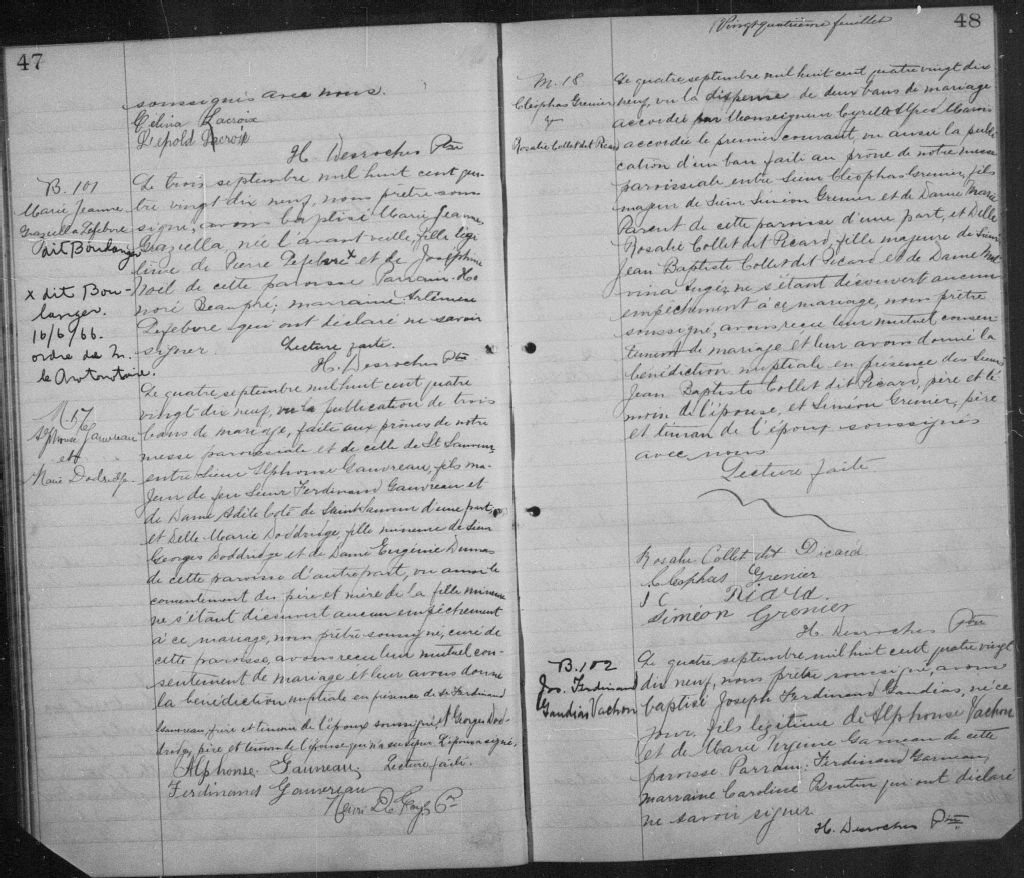 47
soussignés avec nous.
Célina Lacroix
Lépold Lacroix
H. Desroches Ptre
B. 101
Marie Jeanne
Graziella Lefebvre
dit Boulanger
x dit Bou-
langer.
16/6/66.
ordre de M.
le Protonotaire.
Le trois septembre mil huit cent qua-
tre vingt dix neuf, nous prêtre sous
signé, avons baptisé Marie Jeanne
Graziella, née l'avant veille, fille légi-
time de Pierre Lefebvre x et de Joséphine
Noël de cette paroisse Parrain: Ho-
noré Beaupré; marraine Artémise
Lefebvre qui ont déclaré ne savoir
signer. Lecture faite.
H. Desroches Ptre
M 17
Alphonse Gauvreau
et
Marie Dodridge
Le quatre septembre mil huit cent quatre
vingt dix neuf, vu la publication de trois
bans de mariage, faite aux prônes de notre
messe paroissiale et de celle de St Sauveur,
entre Sieur Alphonse Gauvreau, fils ma-
jeur de feu Sieur Ferdinand Gauvreau et
de Dame Adèle Coté de Saint Sauveur d'une part,
et Delle Marie Doddridge, fille mineure de Sieur
Georges Doddridge et de Dame Eugénie Dumas
de cette paroisse d'autre part, vu aussi le
consentement des père et mère de la fille mineure
ne s'étant découvert aucun empêchement
à ce mariage, nous prêtre soussigné, curé de
cette paroisse, avons reçu leur mutuel con-
sentement de mariage et leur avons donné
la bénédiction nuptiale en présence de Sr Ferdinand
Gauvreau, frère et témoin de l'époux soussigné, et Georges Dod-
dridge, père et témoin de l'épouse qui n'a su signer. L'épouse a signé.
Alphonse Gauvreau, Lecture faite.
Ferdinand Gauvereau
Ptre
Vingt quatrième feuillet
48
M. 18
Cléophas Grenier
&
Rosalie Collet dit Picard
Le quatre septembre mil huit cent quatre vingt dix
neuf, vu la dispense de deux bans de mariage
accordée par Monseigneur Cyrille Alfred Marois
accordée le premier courant, vu aussi la publi-
cation d'un ban faite au prône de notre messe
paroissiale entre Sieur Cléophas Grenier, fils
majeur de Sieur Siméon Grenier et de Dame Marie
Parent de cette paroisse d'une part, et Delle
Rosalie Collet dit Picard, fille majeure de Sieur
Jean Baptiste Collet dit Picard et de Dame Mal
vina Augé; ne s'étant découvert aucun
empêchement à ce mariage, nous prêtre
soussigné, avons reçu leur mutuel consen-
tement de mariage et leur avons donné la
bénédiction nuptiale en présence des Sieurs
Jean Baptiste Collet dit Picard, père et té
moin de l'épouse, et Siméon Grenier, père
et témoin de l'époux soussignés
avec nous
Lecture faite.
Rosalie Collet dit Picard
Cléophas Grenier
J C Picard.
Siméon Grenier
H. Desroches Ptre
B. 102
Jos. Ferdinand
Gaudias Vachon
Le quatre septembre mil huit cent quatre vingt
dix neuf, nous prêtre soussigné, avons
baptisé Joseph Ferdinand Gaudias, né ce
jour, fils légitime de Alphonse Vachon
et de Marie Virginie Garneau de cette
paroisse. Parrain: Ferdinand Garneau,
marraine Caroline Boutin qui ont déclaré
ne savoir signer
H. Desroches Ptre